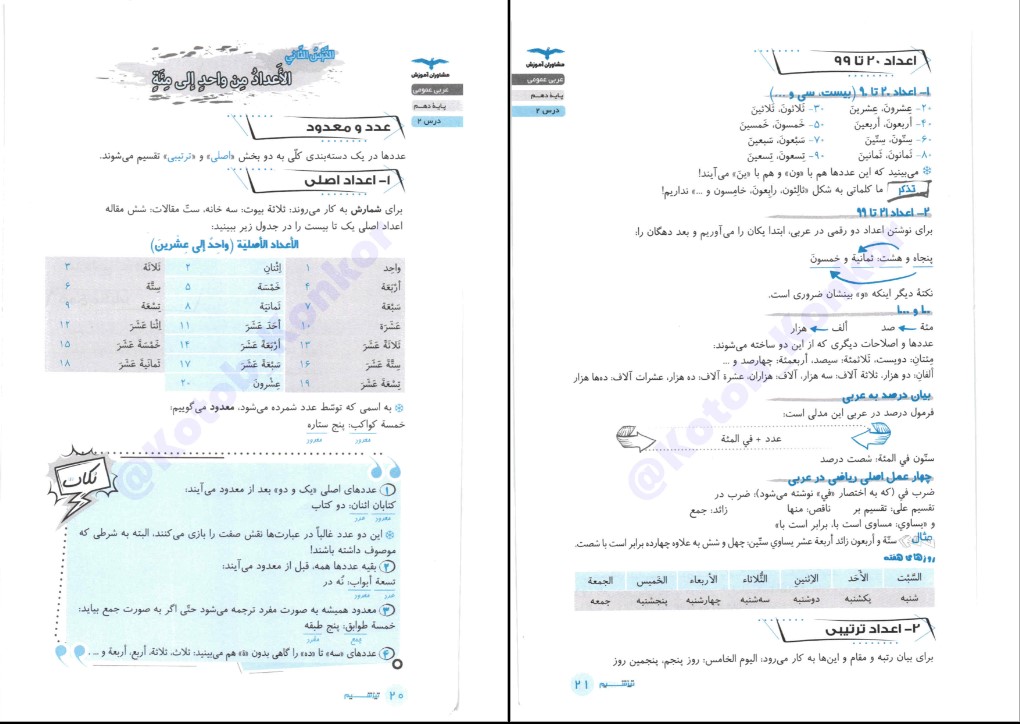 الدَّرسُ الثّاني
الأَعدادُ مِن واحدٍ إلی مِئَةٍ
مشاوران آموزش
عربی عمومی
پایهٔ دهم
درس ۲
عدد و معدود
عددها در یک دسته‌بندی کلّی به دو بخش «اصلی» و «ترتیبی» تقسیم می‌شوند.
۱- اعداد اصلی
برای شمارش به کار می‌روند: ثلاثة بیوت: سه خانه، ستّ مقالات: شش مقاله
اعداد اصلی یک تا بیست را در جدول زیر ببینید:
الأعداد الأصلیّة (واحدٌ إلی عشرینَ)
واحِد ۱ اِثْنانِ ۲ ثَلاثَة ۳
أَرْبَعَة ۴ خَمْسَة ۵ سِتَّة ۶
سَبْعَة ۷ ثَمانِیَة ۸ تِسْعَة ۹
عَشَرَة ۱۰ أَحَدَ عَشَرَ ۱۱ اِثْنا عَشَرَ ۱۲
ثَلاثَةَ عَشَرَ ۱۳ أَرْبَعَةَ عَشَرَ ۱۴ خَمْسَةَ عَشَرَ ۱۵
سِتَّةَ عَشَرَ ۱۶ سَبْعَةَ عَشَرَ ۱۷ ثَمانِیَةَ عَشَرَ ۱۸
تِسْعَةَ عَشَرَ ۱۹ عِشْرونَ ۲۰
به اسمی که توسّط عدد شمرده می‌شود، معدود می‌گوییم:
خمسة کواکب: پنج ستاره
معدود معدود
نکات
۱ عددهای اصلی «یک و دو» بعد از معدود می‌آیند:
کتابان اثنان: دو کتاب
معدود عدد
این دو عدد غالباً در عبارت‌ها نقش صفت را بازی می‌کنند، البته به شرطی که
موصوف داشته باشند!
۲ بقیه عددها همه، قبل از معدود می‌آیند:
تسعة أبواب: نُه در
عدد معدود
۳ معدود همیشه به صورت مفرد ترجمه می‌شود حتّی اگر به صورت جمع بیاید:
خمسة طوابق: پنج طبقه
جمع مفرد
۴ عددهای «سه» تا «ده» را گاهی بدون «ة» هم می‌بینید: ثلاث، ثلاثة، أربع، أربعة و ... .
۲۰
@KotobKonkor
مشاوران آموزش
عربی عمومی
پایهٔ دهم
درس ۲
اعداد ۲۰ تا ۹۹
۱- اعداد ۲۰ تا ۹۰ (بیست، سی و ....)
۲۰- عِشرونَ، عِشرینَ ۳۰- ثَلاثونَ، ثَلاثینَ
۴۰- أربعونَ، أربعینَ ۵۰- خَمسونَ، خَمسینَ
۶۰- سِتّونَ، سِتّینَ ۷۰- سَبْعونَ، سَبعینَ
۸۰- ثَمانونَ، ثَمانینَ ۹۰- تِسعونَ، تِسعینَ
می‌بینید که این عددها هم با «ون» و هم با «ین» می‌آیند!
تذکر ما کلماتی به شکل «ثالِثون، رابِعون، خامِسون و ...» نداریم!
۲- اعداد ۲۱ تا ۹۹
برای نوشتن اعداد دو رقمی در عربی، ابتدا یکان را می‌آوریم و بعد دهگان را:
پنجاه و هشت: ثمانیة و خمسونَ
نکتهٔ دیگر اینکه «و» بینشان ضروری است.
۱۰۰ و ۱۰۰۰
مئة صد ألف هزار
عددها و اصلاحات دیگری که از این دو ساخته می‌شوند:
مِئتانِ: دویست، ثلاثمئة: سیصد، أربعمئة: چهارصد و ...
ألفانِ: دو هزار، ثلاثة آلاف: سه هزار، آلاف: هزاران، عشرة آلاف: ده هزار، عشرات آلاف: ده‌ها هزار
بیان درصد به عربی
فرمول درصد در عربی این مدلی است:
عدد + في المئة
ستّون في المئة: شصت درصد
چهار عمل اصلی ریاضی در عربی
ضرب في (که به اختصار «في» نوشته می‌شود): ضرب در
تقسیم علی: تقسیم بر ناقص: منها زائد: جمع
و «یساوي: مساوی است با، برابر است با»
مثال ستّة و أربعون زائد أربعة عشر یساوي ستّین: چهل و شش به علاوه چهارده برابر است با شصت.
روزهای هفته
السَّبْت الأَحَد الإثنین الثُّلاثاء الأربعاء الخَمیس الجمعة
شنبه یکشنبه دوشنبه سه‌شنبه چهارشنبه پنجشنبه جمعه
۲- اعداد ترتیبی
برای بیان رتبه و مقام و این‌ها به کار می‌رود: الیوم الخامس: روز پنجم، پنجمین روز
۲۱
@KotobKonkor